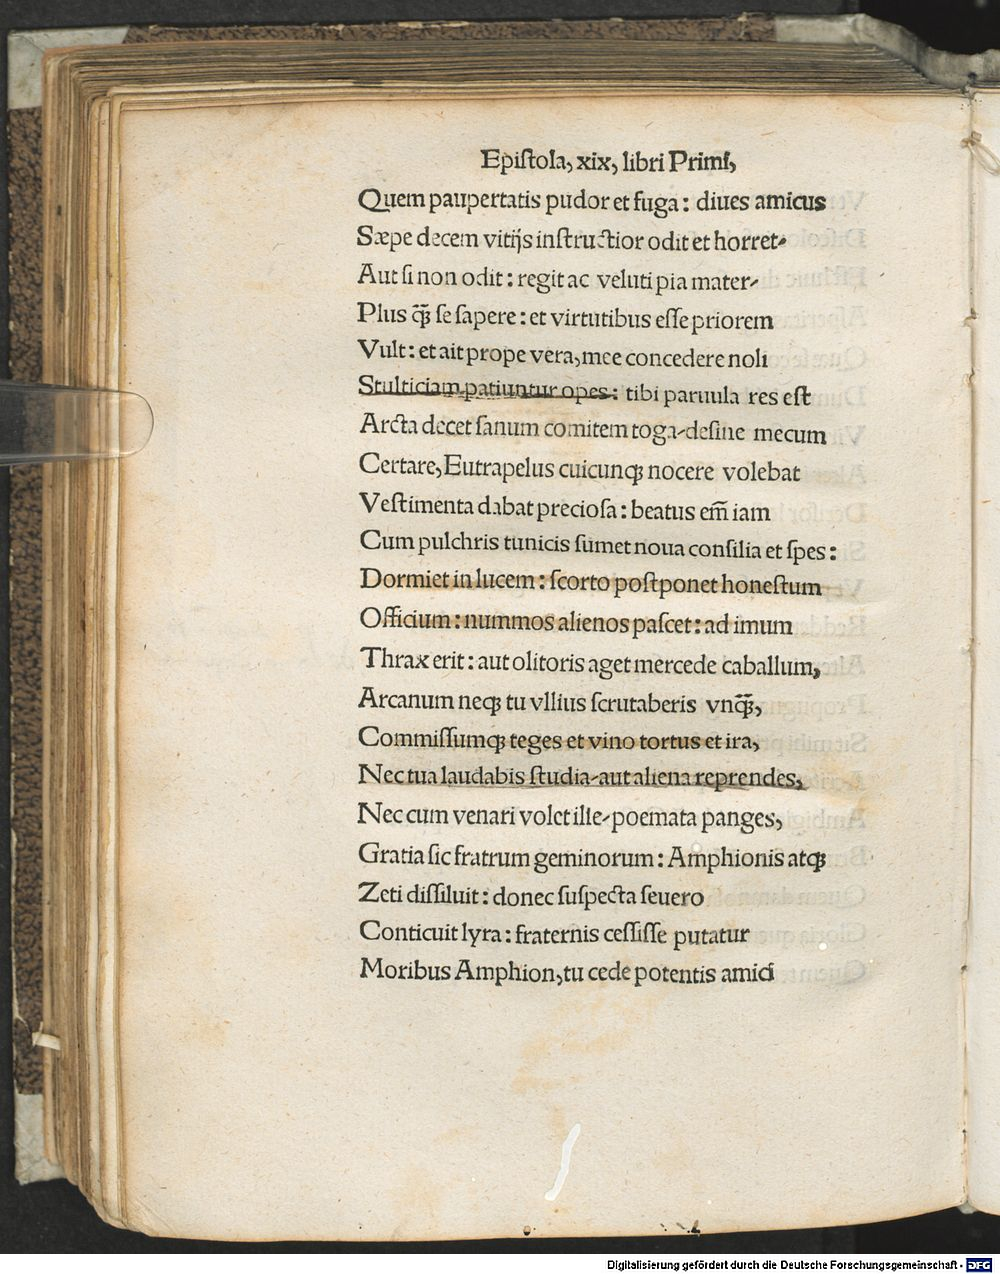 Epiſtola, xix, libri Primi,
Quem paupertatis pudor et fuga: diues amicus
Sæpe decem vitijs inſtructior odit et horret⸗
Aut ſi non odit: regit ac veluti pia mater⸗
Plus q̄ꝫ ſe ſapere: et virtutibus eſſe priorem
Vult: et ait prope vera, mee concedere noli
Stulticiam patiuntur opes: tibi paruula res eſt
Arcta decet ſanum comitem toga⸗deſine mecum
Certare, Eutrapelus cuicunqꝫ nocere volebat
Veſtimenta dabat precioſa: beatus em̄ iam
Cum pulchris tunicis ſumet noua conſilia et ſpes:
Dormiet in lucem: ſcorto poſtponet honeſtum
Officium: nummos alienos paſcet: ad imum
Thrax erit: aut olitoris aget mercede caballum,
Arcanum neqꝫ tu vllius ſcrutaberis vnq̄ꝫ,
Commiſſumqꝫ teges et vino tortus et ira,
Nec tua laudabis ſtudia⸗aut aliena reprendes,
Nec cum venari volet ille⸗poemata panges,
Gratia ſic fratrum geminorum: Amphionis atqꝫ
Zeti diſſiluit: donec ſuſpecta ſeuero
Conticuit lyra: fraternis ceſſiſſe putatur
Moribus Amphion, tu cede potentis amici
Digitalisierung gefördert durch die Deutsche Forschungsgemeinschaft - DFG